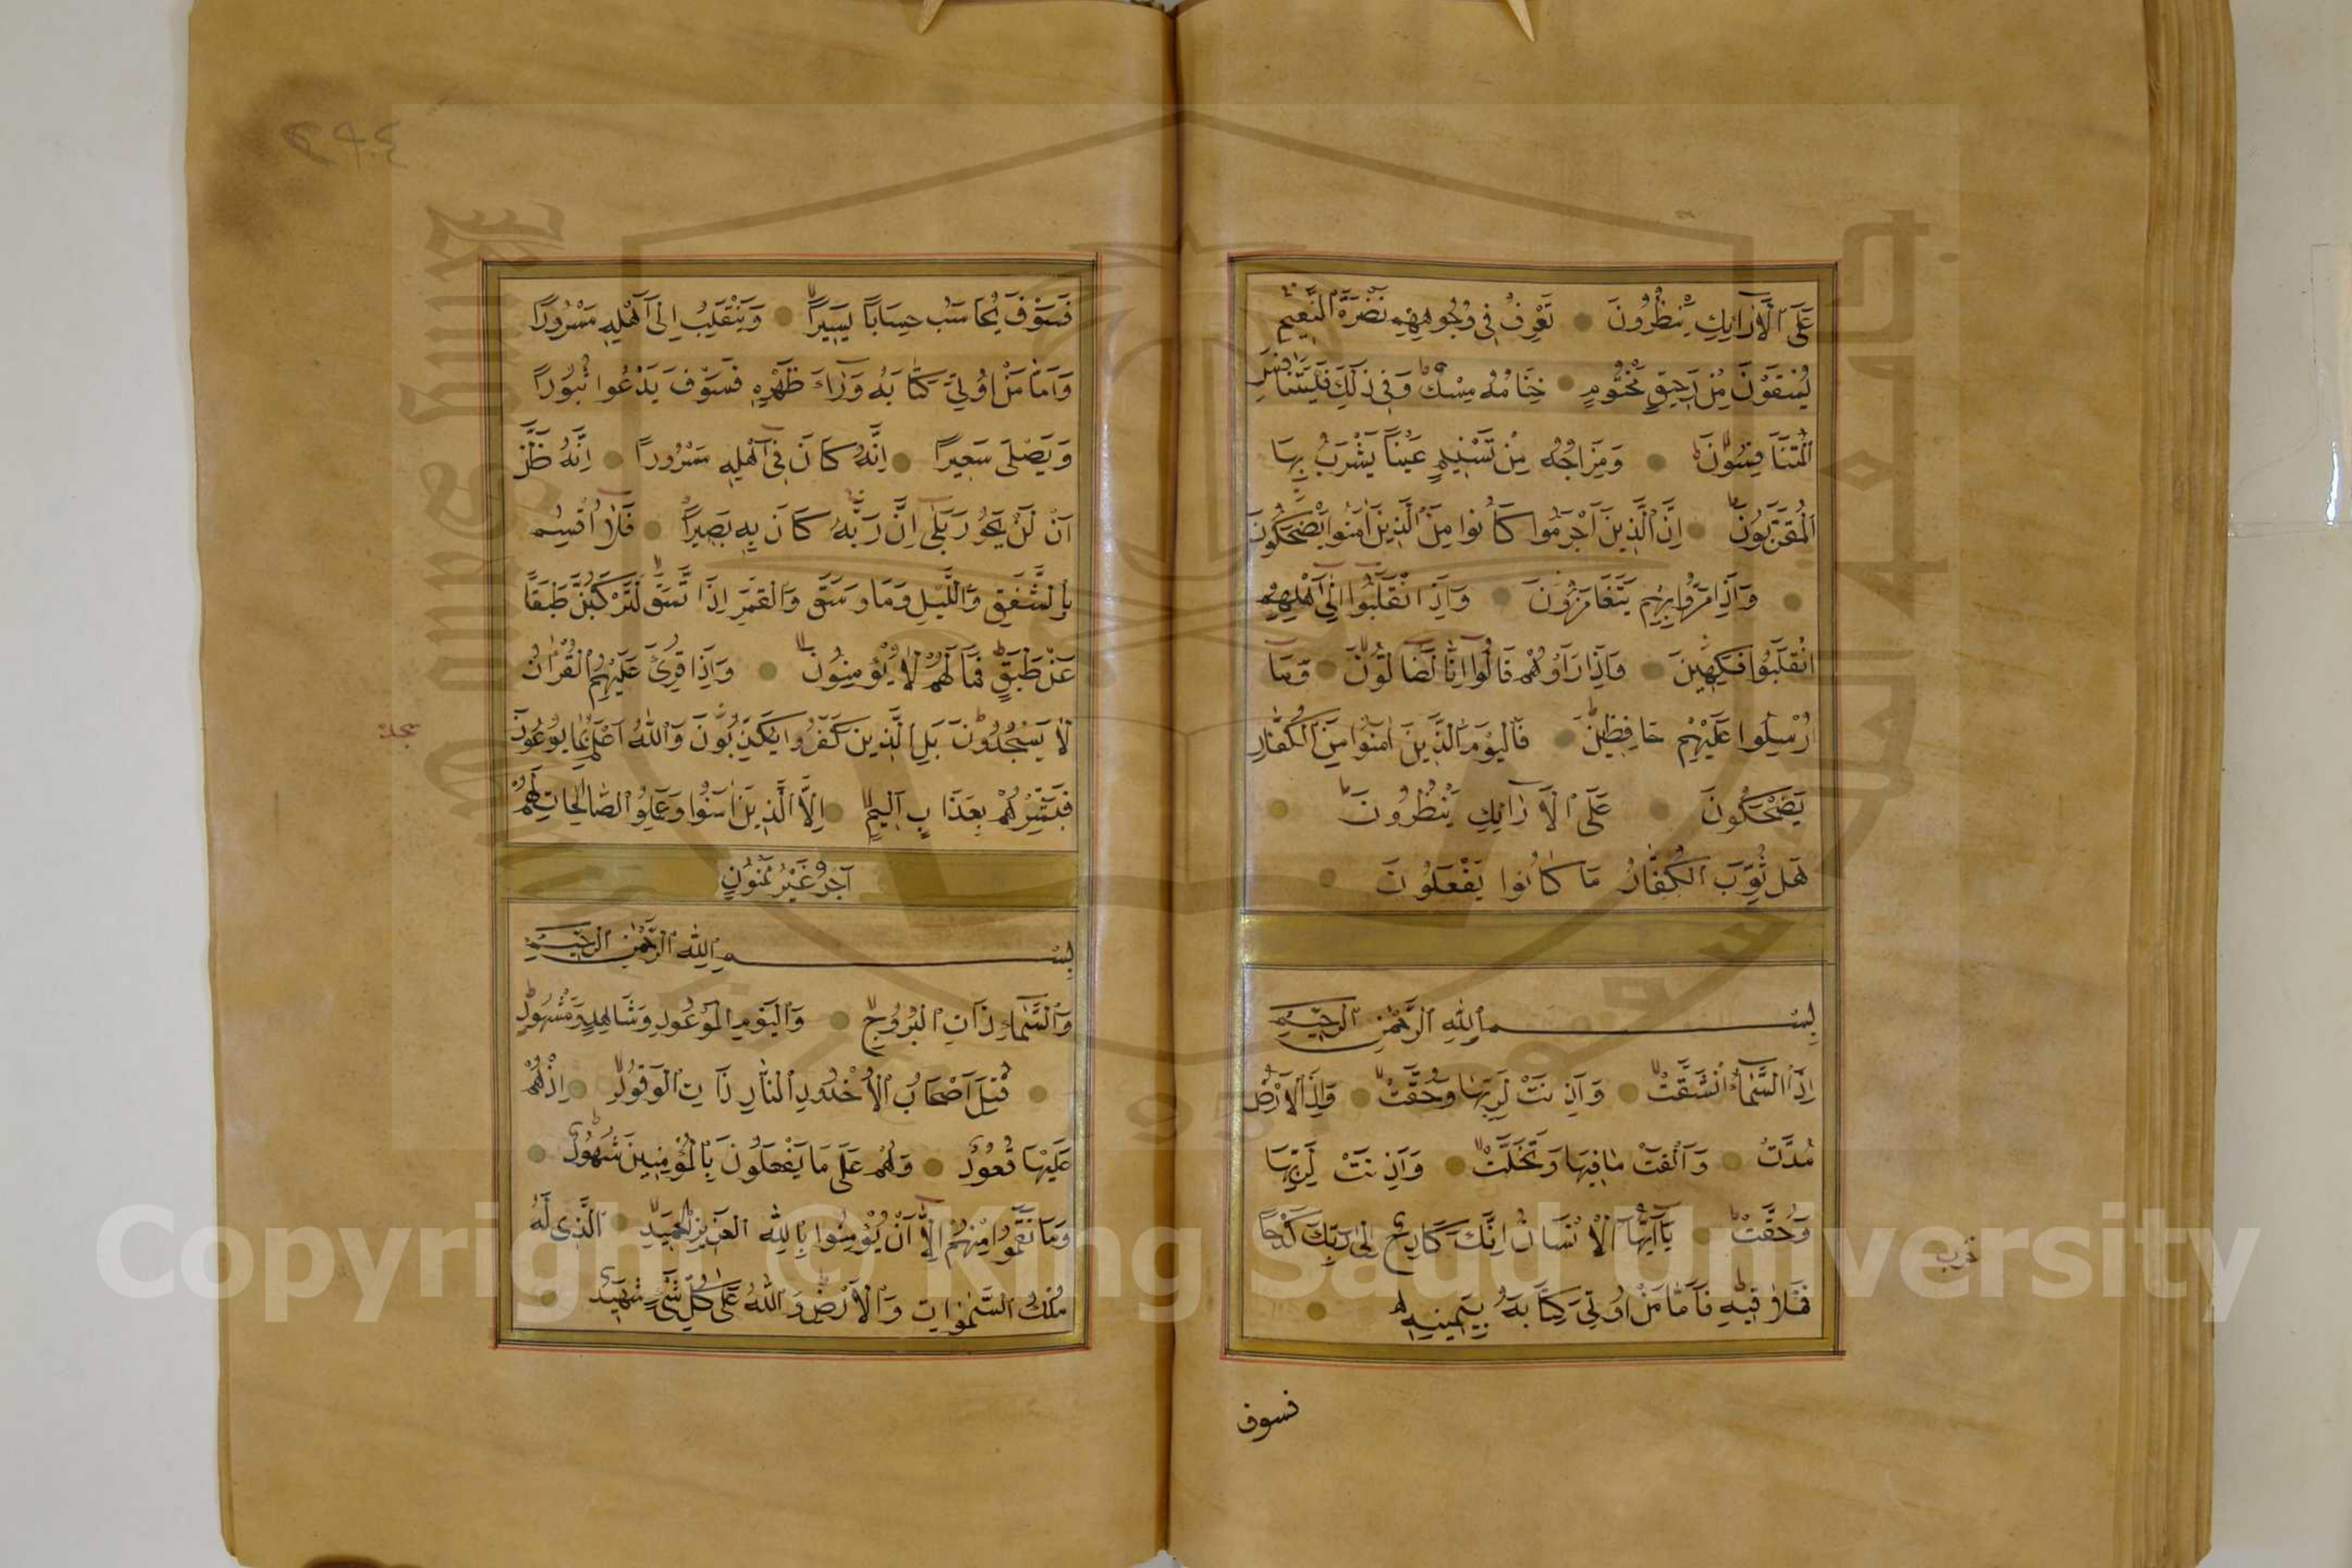 عَلَى ٱلْاَرَآئِكِ يَنْظُرُونَ تَعْرِفُ فِي وُجُوهِهِمْ نَضْرَةَ ٱلنَّعِيمِ
يُسْقَوْنَ مِنْ رَحِيقٍ مَخْتُومٍ خِتَامُهُ مِسْكٌ وَفِي ذٰلِكَ فَلْيَتَنَافَسِ
ٱلْمُتَنَافِسُونَ وَمِزَاجُهُ مِنْ تَسْنِيمٍ عَيْنًا يَشْرَبُ بِهَا
ٱلْمُقَرَّبُونَ اِنَّ ٱلَّذِينَ اَجْرَمُوا كَانُوا مِنَ ٱلَّذِينَ اٰمَنُوا يَضْحَكُونَ
وَاِذَا مَرُّوا بِهِمْ يَتَغَامَزُونَ وَاِذَا ٱنْقَلَبُوا اِلٰٓى اَهْلِهِمُ
ٱنْقَلَبُوا فَكِهِينَ وَاِذَا رَاَوْهُمْ قَالُوا اِنَّ لَضَالُّونَ وَمَا
اُرْسِلُوا عَلَيْهِمْ حَافِظِينَ فَالْيَوْمَ ٱلَّذِينَ اٰمَنُوا مِنَ ٱلْكُفَّارِ
يَضْحَكُونَ عَلَى ٱلْاَرَآئِكِ يَنْظُرُونَ
هَلْ ثُوِّبَ ٱلْكُفَّارُ مَا كَانُوا يَفْعَلُونَ
بِسْمِ ٱللّٰهِ ٱلرَّحْمٰنِ ٱلرَّحِيمِ
اِذَا ٱلسَّمَآءُ ٱنْشَقَّتْ وَاَذِنَتْ لِرَبِّهَا وَحُقَّتْ وَاِذَا ٱلْاَرْضُ
مُدَّتْ وَاَلْقَتْ مَا فِيهَا وَتَخَلَّتْ وَاَذِنَتْ لِرَبِّهَا
وَحُقَّتْ يَآ اَيُّهَا ٱلْاِنْسَانُ اِنَّكَ كَادِحٌ اِلٰى رَبِّكَ كَدْحًا
فَمُلَاقِيهِ فَاَمَّا مَنْ اُوتِيَ كِتَابَهُ بِيَمِينِهِ
حزب
فسوف
فَسَوْفَ يُحَاسَبُ حِسَابًا يَسِيرًا وَيَنْقَلِبُ اِلٰٓى اَهْلِهِ مَسْرُورًا
وَاَمَّا مَنْ اُوتِيَ كِتَابَهُ وَرَآءَ ظَهْرِهِ فَسَوْفَ يَدْعُوا ثُبُورًا
وَيَصْلٰى سَعِيرًا اِنَّهُ كَانَ فِٓي اَهْلِهِ مَسْرُورًا اِنَّهُ ظَنَّ
اَنْ لَنْ يَحُورَ بَلٰٓى اِنَّ رَبَّهُ كَانَ بِهِ بَصِيرًا فَلَآ اُقْسِمُ
بِالشَّفَقِ وَٱللَّيْلِ وَمَا وَسَقَ وَٱلْقَمَرِ اِذَا ٱتَّسَقَ لَتَرْكَبُنَّ طَبَقًا
عَنْ طَبَقٍ فَمَا لَهُمْ لَا يُؤْمِنُونَ وَاِذَا قُرِئَ عَلَيْهِمُ ٱلْقُرْاٰنُ
لَا يَسْجُدُونَ بَلِ ٱلَّذِينَ كَفَرُوا يُكَذِّبُونَ وَٱللّٰهُ اَعْلَمُ بِمَا يُوعُونَ
فَبَشِّرْهُمْ بِعَذَابٍ اَلِيمٍ اِلَّا ٱلَّذِينَ اٰمَنُوا وَعَمِلُوا ٱلصَّالِحَاتِ لَهُمْ
اَجْرٌ غَيْرُ مَمْنُونٍ
بِسْمِ ٱللّٰهِ ٱلرَّحْمٰنِ ٱلرَّحِيمِ
وَٱلسَّمَآءِ ذَاتِ ٱلْبُرُوجِ وَٱلْيَوْمِ ٱلْمَوْعُودِ وَشَاهِدٍ وَمَشْهُودٍ
قُتِلَ اَصْحَابُ ٱلْاُخْدُودِ ٱلنَّارِ ذَاتِ ٱلْوَقُودِ اِذْ هُمْ
عَلَيْهَا قُعُودٌ وَهُمْ عَلٰى مَا يَفْعَلُونَ بِالْمُؤْمِنِينَ شُهُودٌ
وَمَا نَقَمُوا مِنْهُمْ اِلَّآ اَنْ يُؤْمِنُوا بِاللّٰهِ ٱلْعَزِيزِ ٱلْحَمِيدِ ٱلَّذِي لَهُ
مُلْكُ ٱلسَّمٰوَاتِ وَٱلْاَرْضِ وَٱللّٰهُ عَلٰى كُلِّ شَيْءٍ شَهِيدٌ
سجدة
Copyright © King Saud University